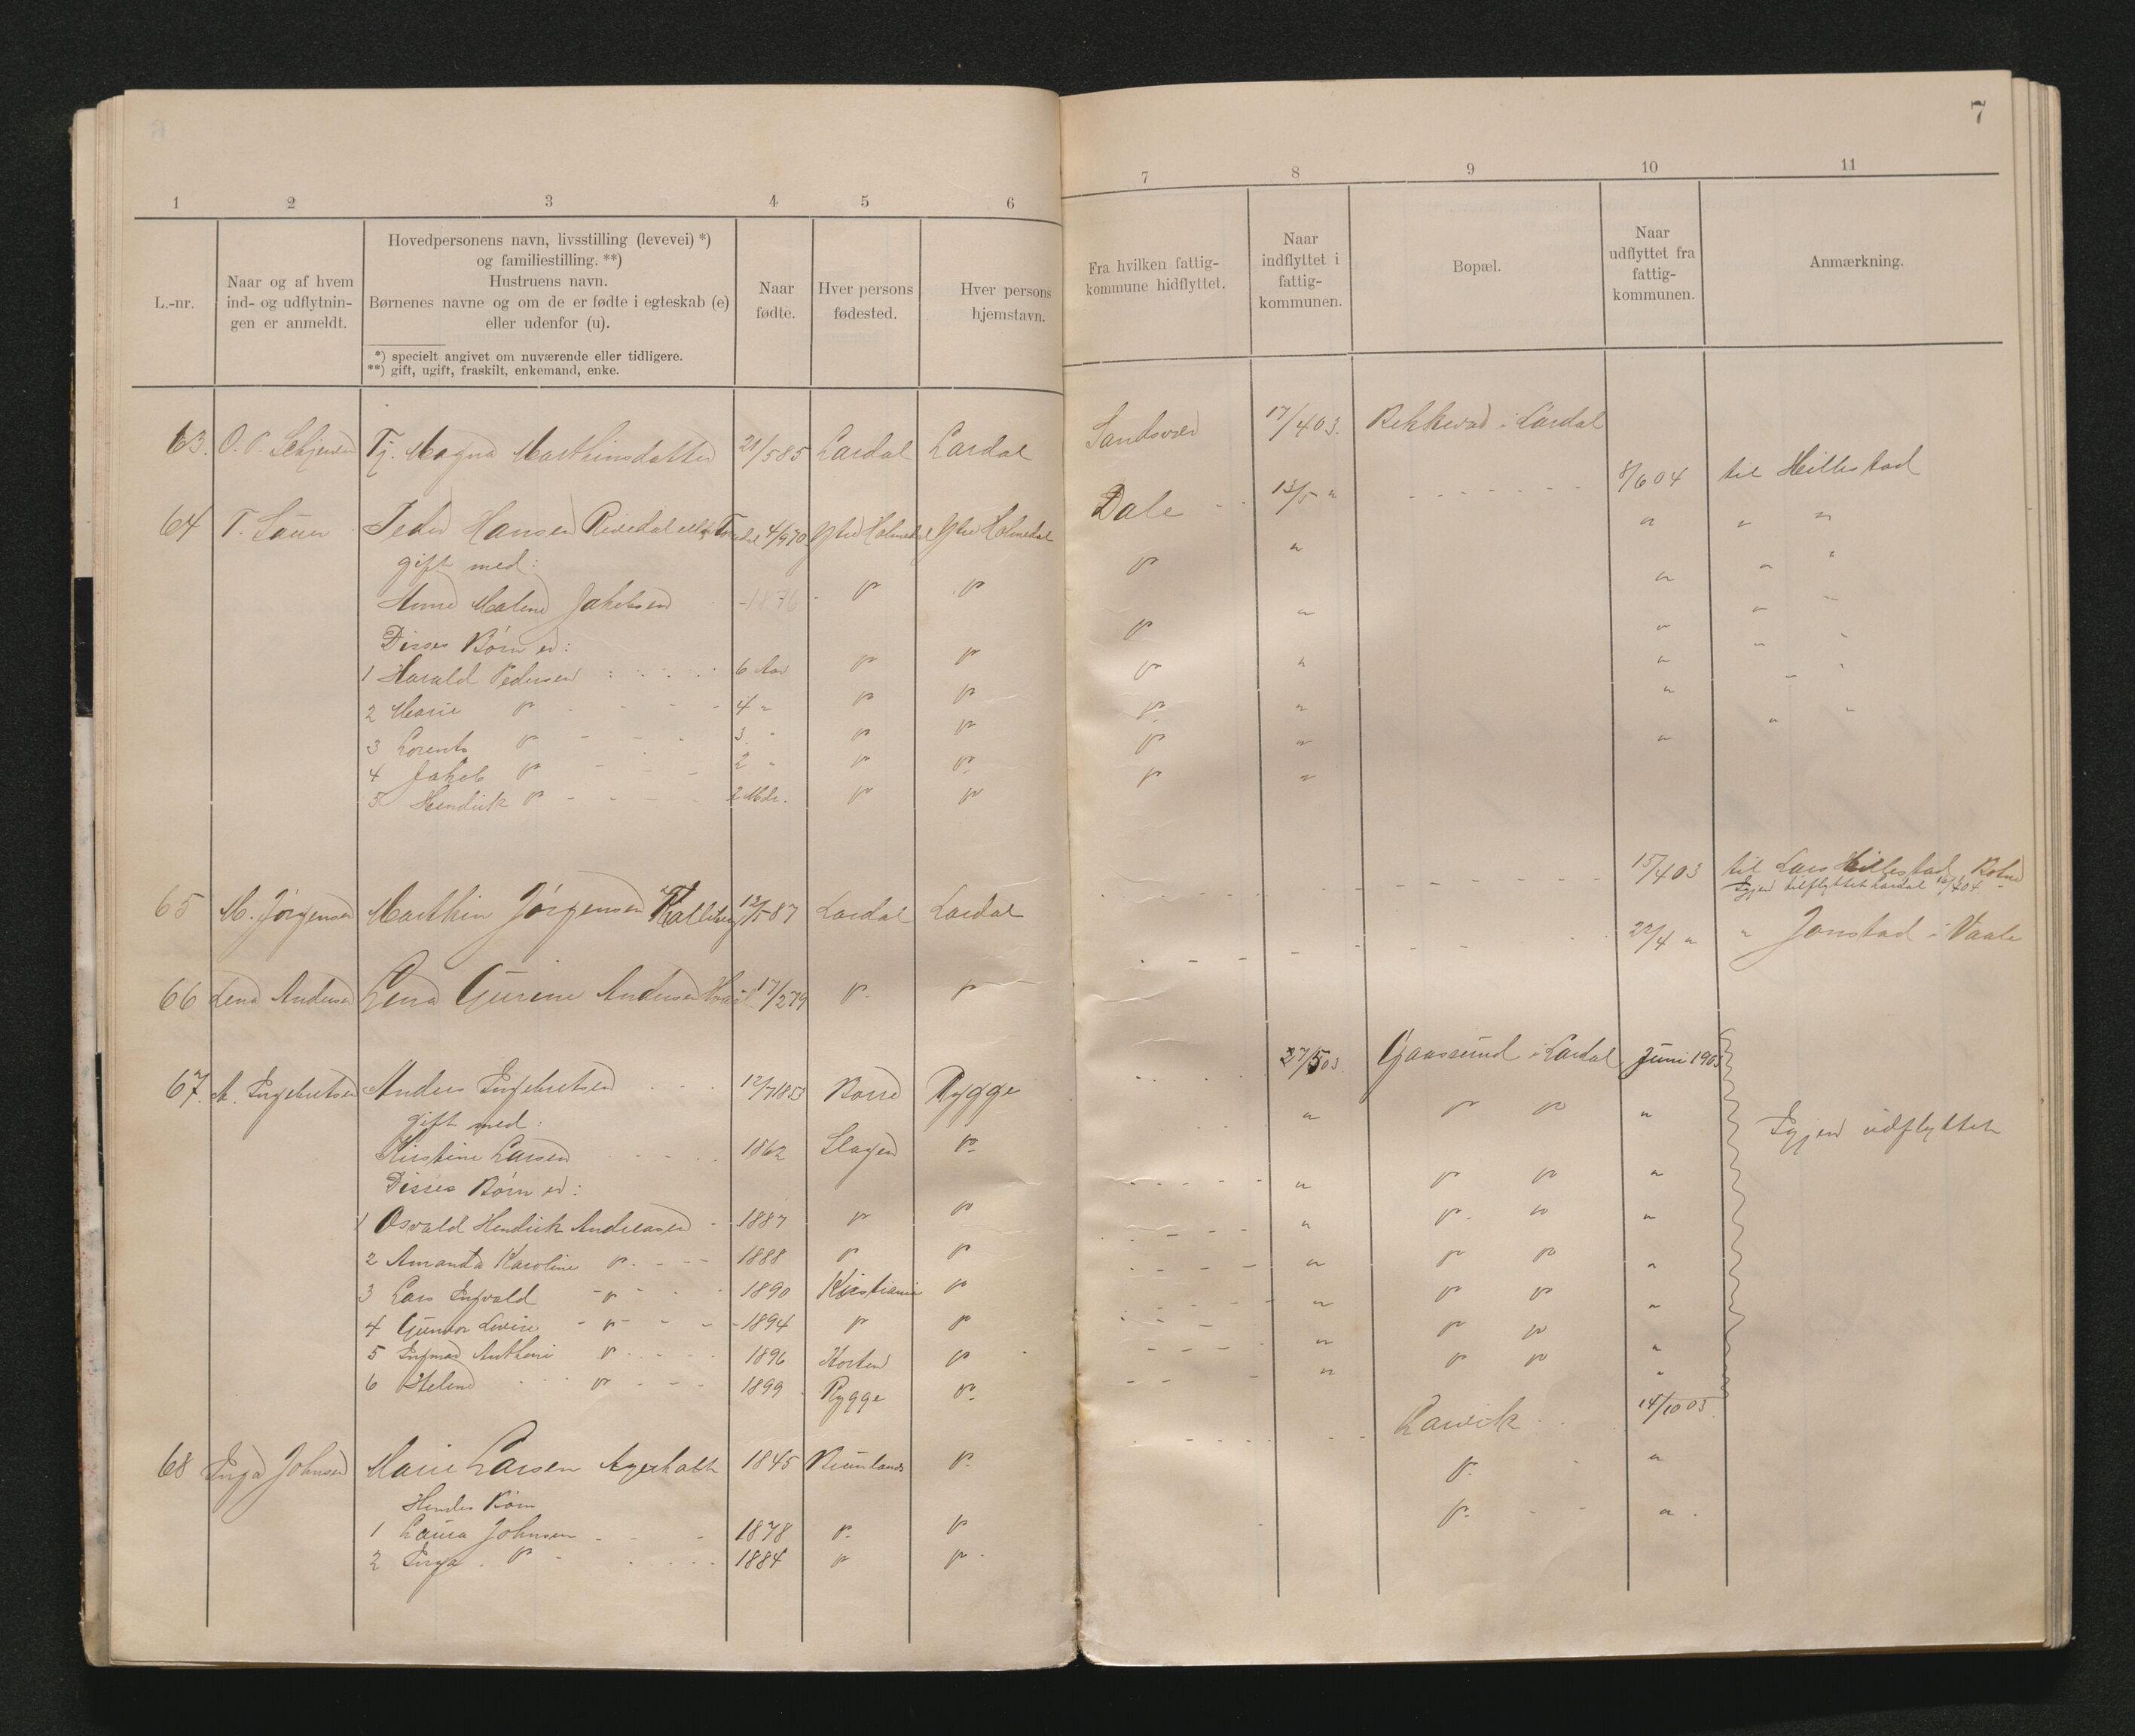 7
1 2 3 4 5 6 7 8 9 10 11
L.-nr.
Naar og af hvem
ind- og udflytnin-
gen er anmeldt.
Hovedpersonens navn, livsstilling (levevei) *)
og familiestilling. **)
Hustruens navn.
Børnenes navne og om de er fødte i egteskab (e)
eller udenfor (u).
*) specielt angivet om nuværende eller tidligere.
**) gift, ugift, fraskilt, enkemand, enke.
Naar
fødte.
Hver persons
fødested.
Hver persons
hjemstavn.
Fra hvilken fattig-
kommune hidflyttet.
Naar
indflyttet i
fattig-
kommunen.
Bopæl.
Naar
udflyttet fra
fattig-
kommunen.
Anmærkning.
63. O. P. Tj. Magna Marthinsdatter 21/5 85 Lardal Lardal Sandsvær 17/4 03. i Lardal
64 T. Peder Hansen Risedal 4/9 70 Ytre Holmedal Ytre Holmedal Dale 13/5 " 8/6 04 til Hillestad
gift med:
Anne Malene Jakobsen - 1876 - " "
Disses Børn er:
1 Harald Pedersen 6 Aar "
2 Marie " 4 " "
3 Lorents " 3 " "
4 Jakob " 2 " "
5 Hendrik " 2 Mdr. "
65 M. Jørgensen Marthin Jørgensen 12/5 87 Lardal Lardal 15/4 03 til Lars Hillestad, Botne
Igjen tilflyttet Lardal
66 Lena Andersen Lena Gurine Andersen 17/2 79 " " 22/4 " " Jonstad i Vaale
67. A. Engebretsen Anders Engebretsen 12/7 1853 Borre Rygge 27/5 03. Gaaserud i Lardal Juni 1903
gift med:
Kirstine Larsen 1862 Slagen " Igjen udflyttet
Disses Børn er:
1 Osvald Hendrik Andreasen 1887 " "
2 Amanda Karoline " 1888 " "
3 Lars Ingvald " 1890 Kristiania "
4 Gunvor Lovise " 1894 " "
5 Anthoni " 1896 Horten "
6 Helene " 1899 Rygge "
68 Inga Johnsen Marie Larsen Agerholt 1845 Brunlanes " Larvik 14/10 03.
Hendes Børn
1 Laura Johnsen 1878 " " " "
2 Inga " 1884 " " " "